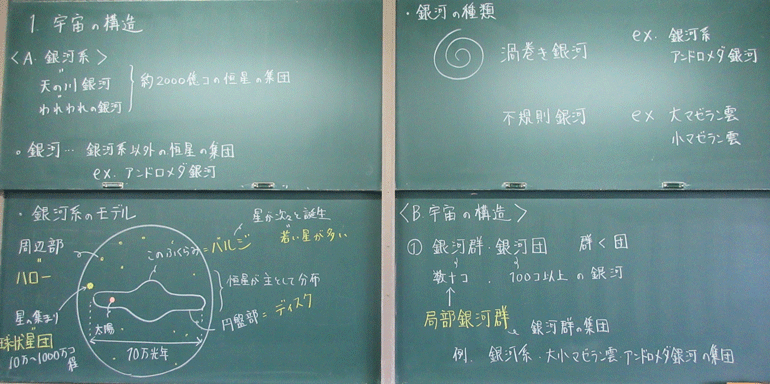 1. 宇宙の構造
<A. 銀河系>
天の川銀河
われわれの銀河
約2000億コの恒星の集団
○銀河… 銀河系以外の恒星の集団
ex. アンドロメダ銀河
・銀河の種類
渦巻き銀河 ex. 銀河系
アンドロメダ銀河
不規則銀河 ex 大マゼラン雲
小マゼラン雲
・銀河系のモデル
星が次々と誕生
若い星が多い
このふくらみ=バルジ
周辺部
ハロー
恒星が主として分布
星の集まり
球状星団
10万~1000万コ程
太陽
円盤部=ディスク
10万光年
<B. 宇宙の構造>
① 銀河群・銀河団 群く団
数十コ 、 100コ以上の銀河
局部銀河群
銀河群の集団
例. 銀河系・大小マゼラン雲・アンドロメダ銀河の集団